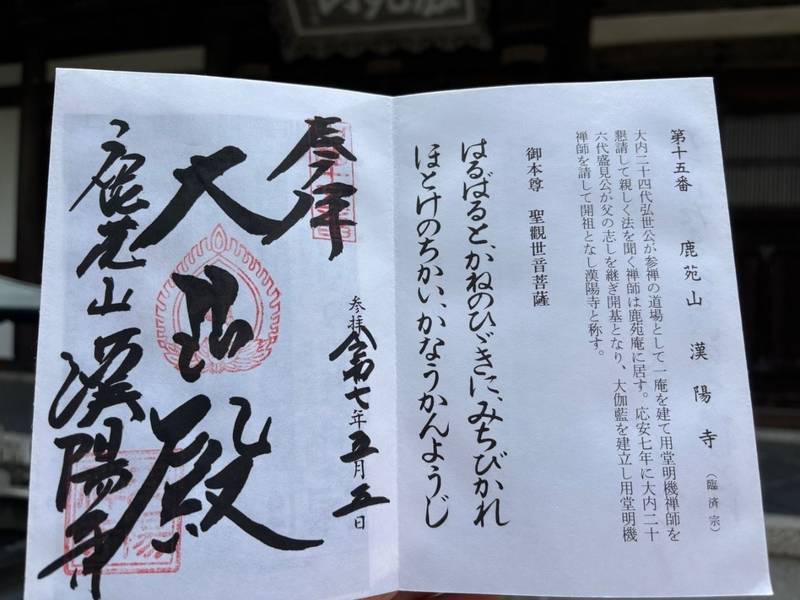 第十五番　鹿苑山　漢陽寺（臨済宗）
大内二十四代弘世公が参禅の道場として一庵を建て用堂明機禅師を
懇請して親しく法を聞く禅師は鹿苑庵に居す。応安七年に大内二十
六代盛見公が父の志しを継ぎ開基となり、大伽藍を建立し用堂明機
禅師を請して開祖となし漢陽寺と称す。
御本尊　聖觀世音菩薩
はるばると、かねのひゞきに、みちびかれ
ほとけのちかい、かなうかんようじ
奉拝
参拝 令和七年五月三日
大悲殿
鹿苑山 漢陽寺